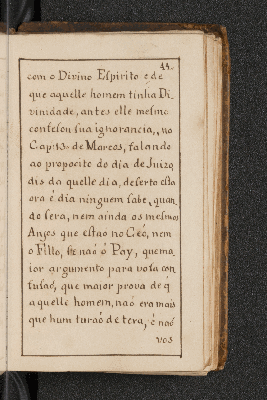 44.
com o Divino Espirito e de
que aquelle homem tinha Di-
vindade, antes elle mesmo
confesou sua ignorancia, no
Cap. 13. de Marcos, falando
ao propocito do dia de Juizo,
dis da quelle dia, deserto esta
ora é dia ninguem sabe, quan-
do sera, nem ainda os mesmos
Anjos que estao no Ceó, nem
o Filho, se naó ó Pay, que ma-
ior argumento para vosa con
fusaó, que maior prova de q̃
aquelle homem, naó era mais
que hum turaó de tera, é naó
vos